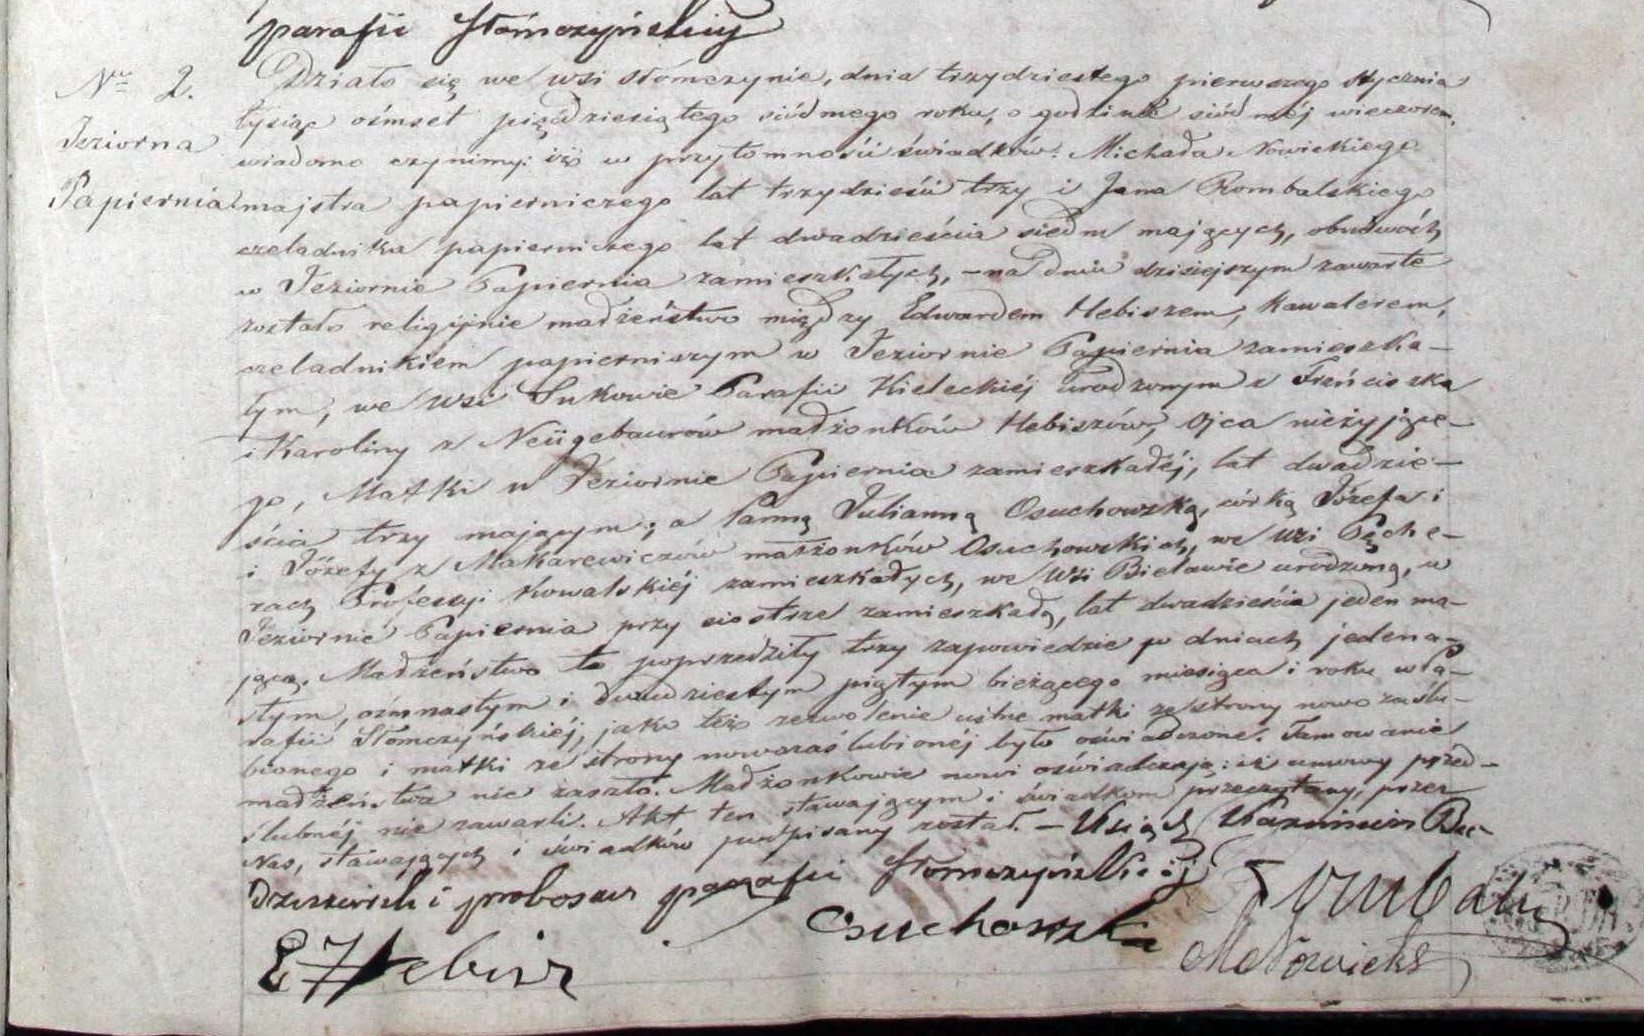 parafii Słomczyńskiej
Nro 2.
Jeziorna
Papiernia
Działo się we wsi słomczynie, dnia trzydziestego pierwszego stycznia
tysiąc ośmset pięćdziesiątego siódmego roku, o godzinie siódmej wieczorem,
wiadomo czynimy: iż w przytomności świadków: Michała Nowickiego
majstra papierniczego lat trzydzieści trzy i Jana Rombalskiego
czeladnika papierniczego lat dwadzieścia siedm mających, obudwóch
w Jeziornie Papiernia zamieszkałych, – na dniu dzisiejszym zawarte
zostało religijnie małżeństwo między Edwardem Hebiszem, kawalerem,
czeladnikiem papierniszym w Jeziornie Papiernia zamieszka–
łym, we wsi Sukowie Parafii Kieleckiéj urodzonym z Frańciszka
i Karoliny z Neügebaurów małżonków Hebiszów, Ojca nieżyjące–
go, Matki w Jeziornie Papiernia zamieszkałéj, lat dwadzie–
ścia trzy mającym; a Panną Julianną Osuchowską, córką Józefa i
i Józefy z Makarewiczów małżonków Osuchowskich, we wsi Pęche–
rach Professyi Kowalskiéj zamieszkałych, we wsi Bielawie urodzoną, w
Jeziornie Papiernia przy siostrze zamieszkałą, lat dwadzieścia jeden ma–
jącą. Małżeństwo to poprzedziły trzy zapowiedzie w dniach jedena–
stym, ośmnastym i dwudziestym piątym bieżącego miesiąca i roku w Pa–
rafii Słomczyńskiéj, jako też zezwolenie ustne matki ze strony nowo zaślu–
bionego i matki ze strony nowozaślubionéj było oświadczone. Tamowanie
małżeństwa nie zaszło. Małżonkowie nowi oświadczają: iż umowy przed–
ślubnéj nie zawarli. Akt ten stawającym i świadkom przeczytany, przez
Nas, stawających i świadków podpisany został. – Ksiądz Kazimierz Bu–
dziszewski proboszcz parafii Słomczyńskiej
Osuchowska
E Hebisz
M Nowicki